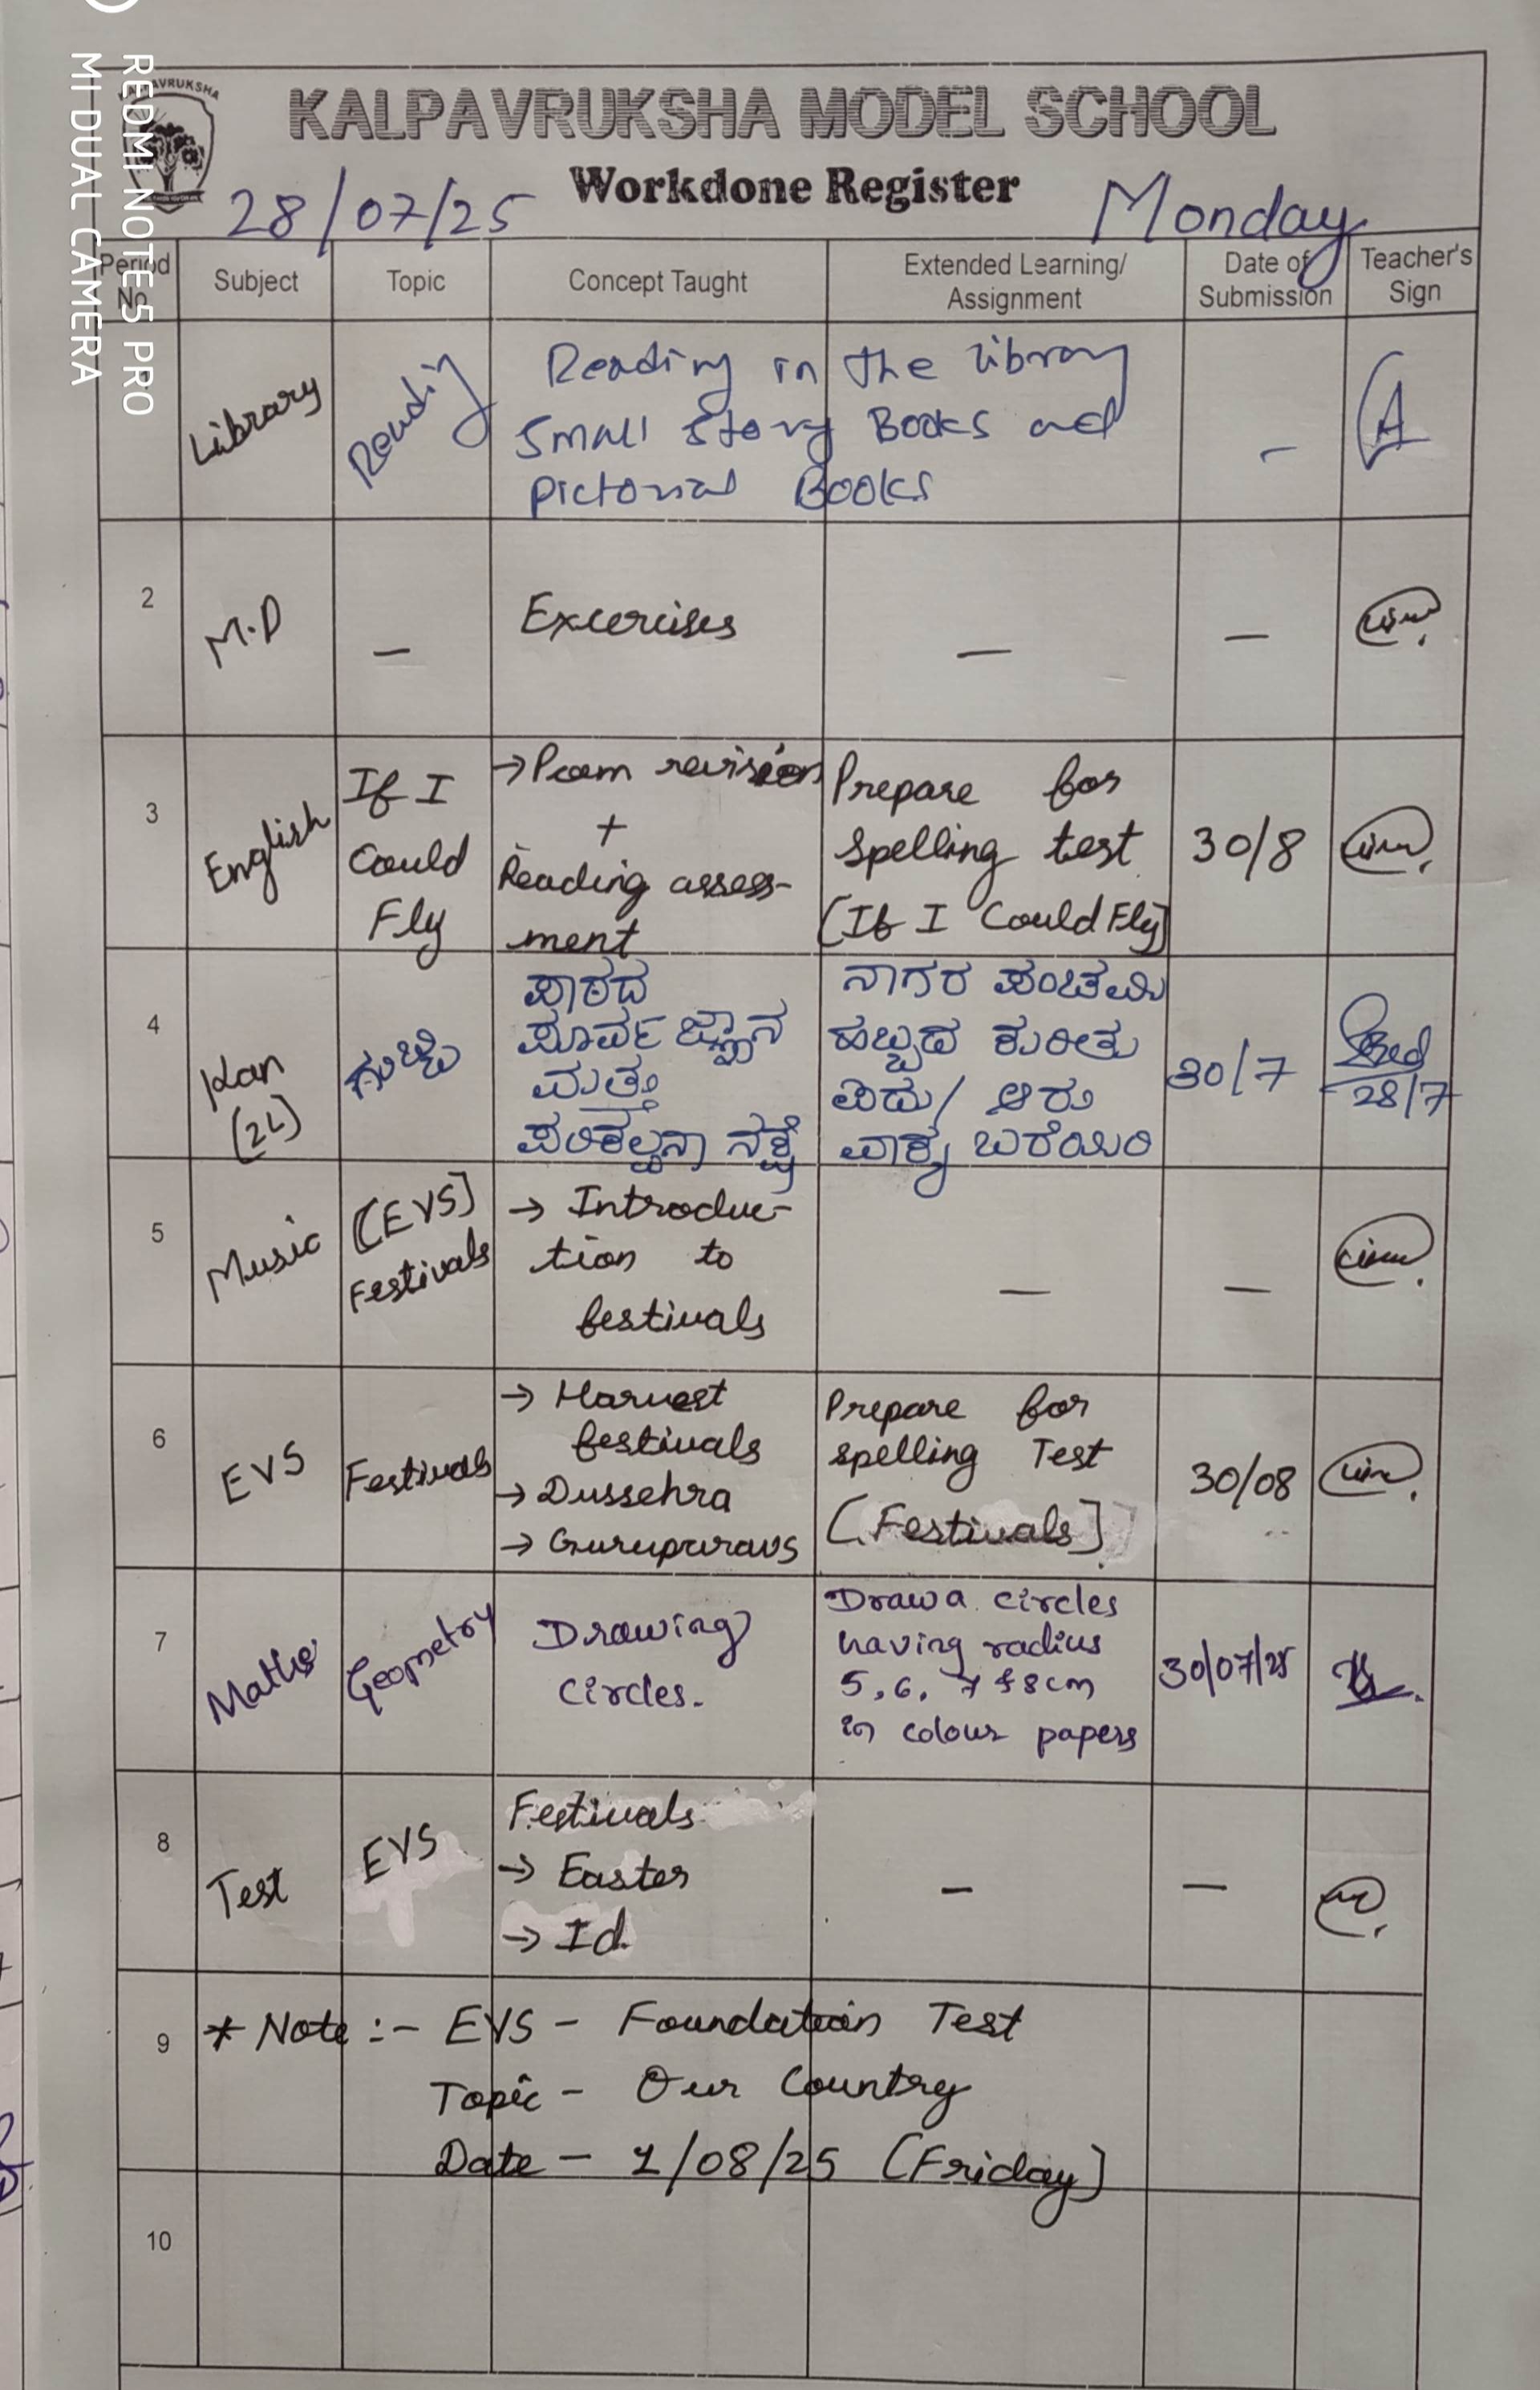 REDMI NOTE 5 PRO
MI DUAL CAMERA
KALPAVRUKSHA MODEL SCHOOL
Workdone Register
28/07/25 Monday
Period No. Subject Topic Concept Taught Extended Learning/ Assignment Date of Submission Teacher's Sign
Library Reading Reading in the library
Small Story Books and
Pictorial Books
–
2 M.D – Excercises – –
3 English If I Could Fly
→ Poem revision
+
Reading assess-
ment
Prepare for
Spelling test
[If I Could Fly]
30/8
4 Kan (2L) ಗುಬ್ಬಿ
ಪಾಠದ
ಪೂರ್ವ ಜ್ಞಾನ
ಮತ್ತು
ಪರಿಕಲ್ಪನಾ ನಕ್ಷೆ
ನಾಗರ ಪಂಚಮಿ
ಹಬ್ಬದ ಕುರಿತು
ಐದು/ ಆರು
ವಾಕ್ಯ ಬರೆಯಿರಿ
30/7
28/7
5 Music [EVS] Festivals
→ Introduc-
tion to
festivals
– –
6 EVS Festivals
→ Harvest
festivals
→ Dussehra
→ Guruparavs
Prepare for
spelling Test
[Festivals]
30/08
7 Maths Geometry
Drawing
Circles.
Draw a circles
having radius
5, 6, 7 & 8 cm
in colour papers
30/07/25
8 Test EVS
Festivals
→ Easter
→ Id.
– –
9 * Note :- EVS - Foundation Test
Topic - Our Country
Date - 1/08/25 [Friday]
10